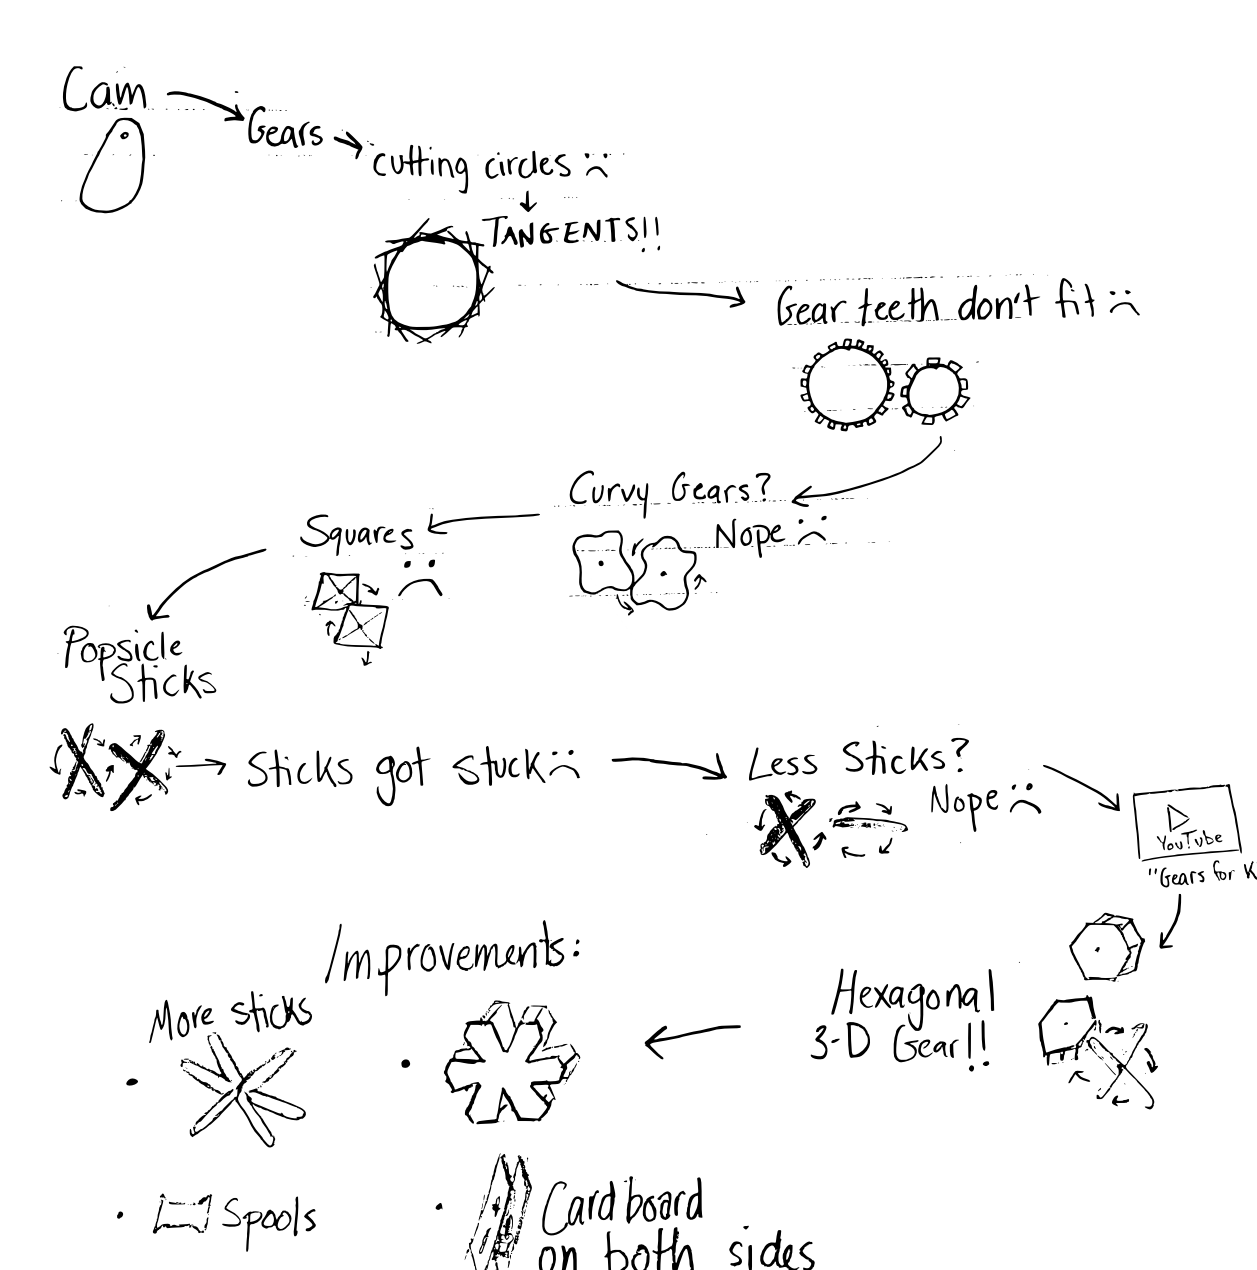 Cam
Gears
cutting circles
TANGENTS!!
Gear teeth don't fit
Curvy Gears?
Nope
Squares
Popsicle
Sticks
Sticks got stuck
Less Sticks?
Nope
YouTube
"Gears for K
Hexagonal
3-D Gear!!
Improvements:
More sticks
Spools
Cardboard
on both sides